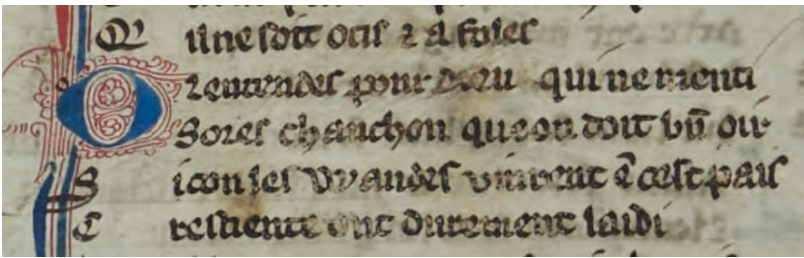 Q ilne soit ocis ⁊ afoles
O r entendes pour dieu qui ne menti
Bones chanchon que on doit bn̄ oir
S i con les vvandes vinrent ē cest pais
C restiente ont durement laidi